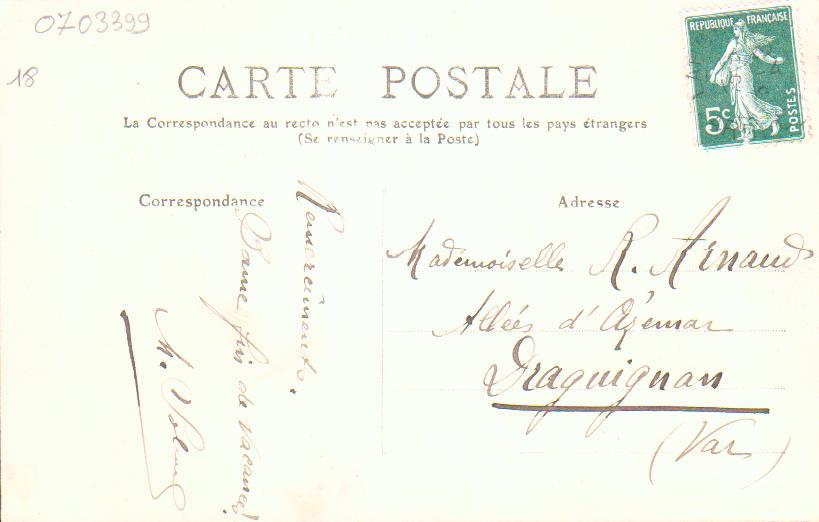 0703399
18
RÉPUBLIQUE FRANÇAISE
5c
POSTES
CARTE POSTALE
La Correspondance au recto n'est pas acceptée par tous les pays étrangers
(Se renseigner à la Poste)
Correspondance
Remerciments.
Bonne fin de vacances
M.
Adresse
Mademoiselle R. Arnaud
Allées d'Azémar
Draguignan
(Var)